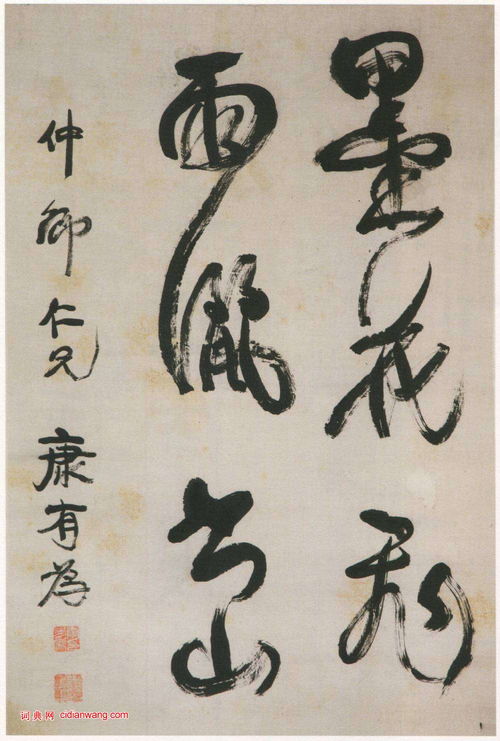 墨花飛
雨
仲卿仁兄 康有為
词典网 cidianwang.com